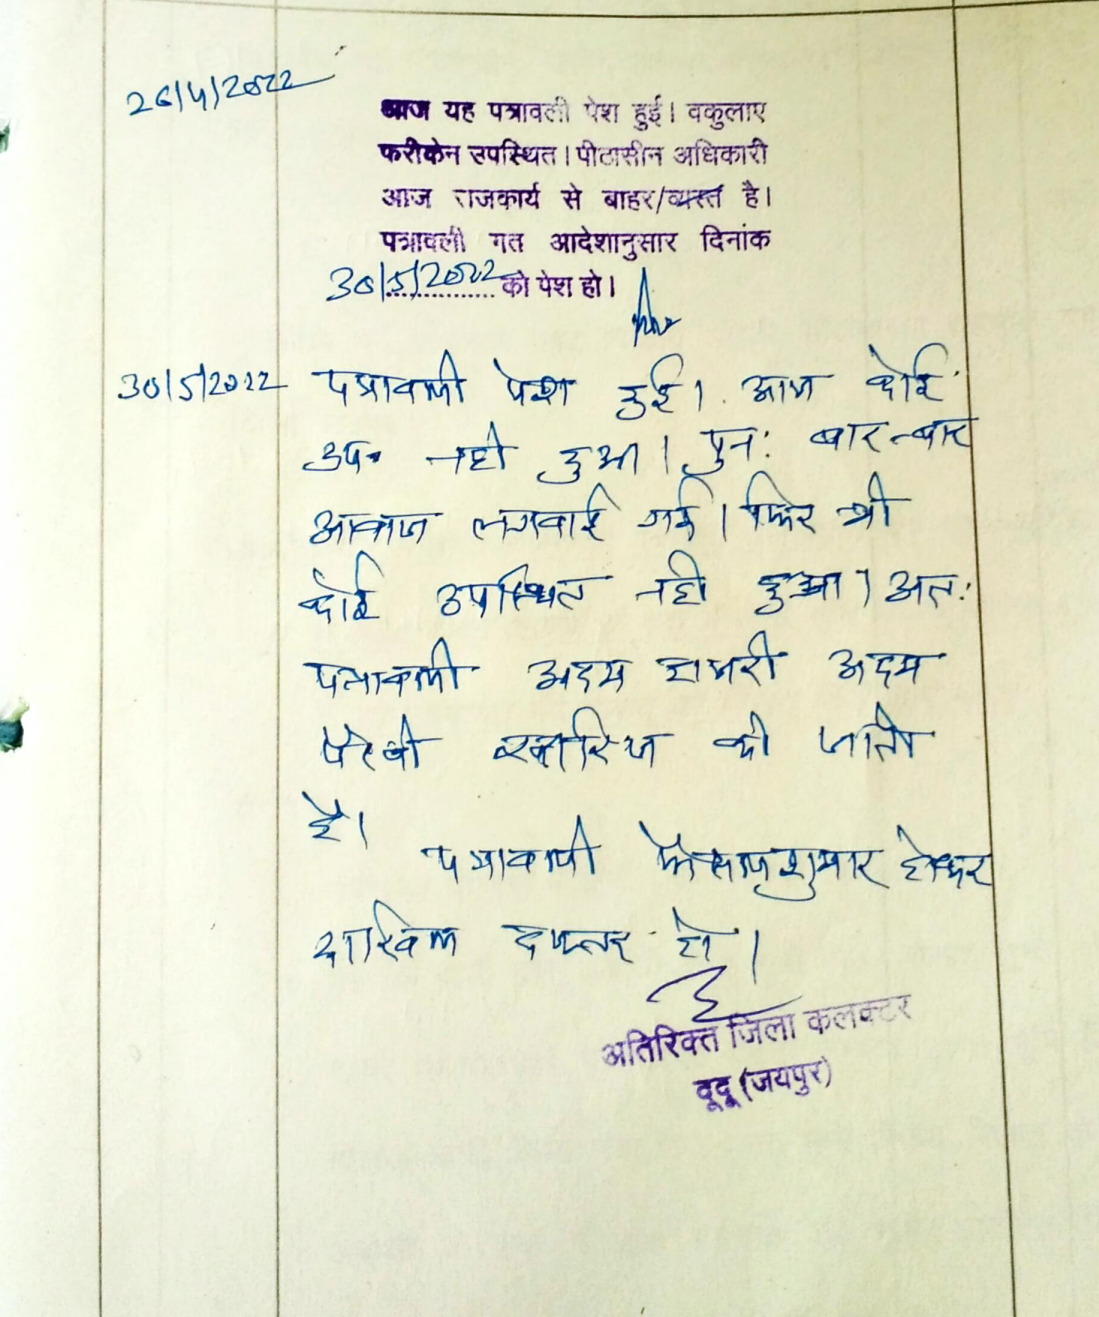 26/4/2022
आज यह पत्रावली पेश हुई। वकुलाए
फरीकेन उपस्थित। पीठासीन अधिकारी
आज राजकार्य से बाहर/व्यस्त है।
पत्रावली गत आदेशानुसार दिनांक
30/5/2022 को पेश हो।
30/5/2022 पत्रावली पेश हुई। आज कोई
उप० नही हुआ। पुन: बार-बार
आवाज लगवाई गई। फिर भी
कोई उपस्थित नही हुआ। अत:
पत्रावली अदम हाजरी अदम
पैरवी खारिज की जाती
है।
पत्रावली फैसलशुमार होकर
दाखिल दफ्तर हो।
अतिरिक्त जिला कलक्टर
दूदू (जयपुर)